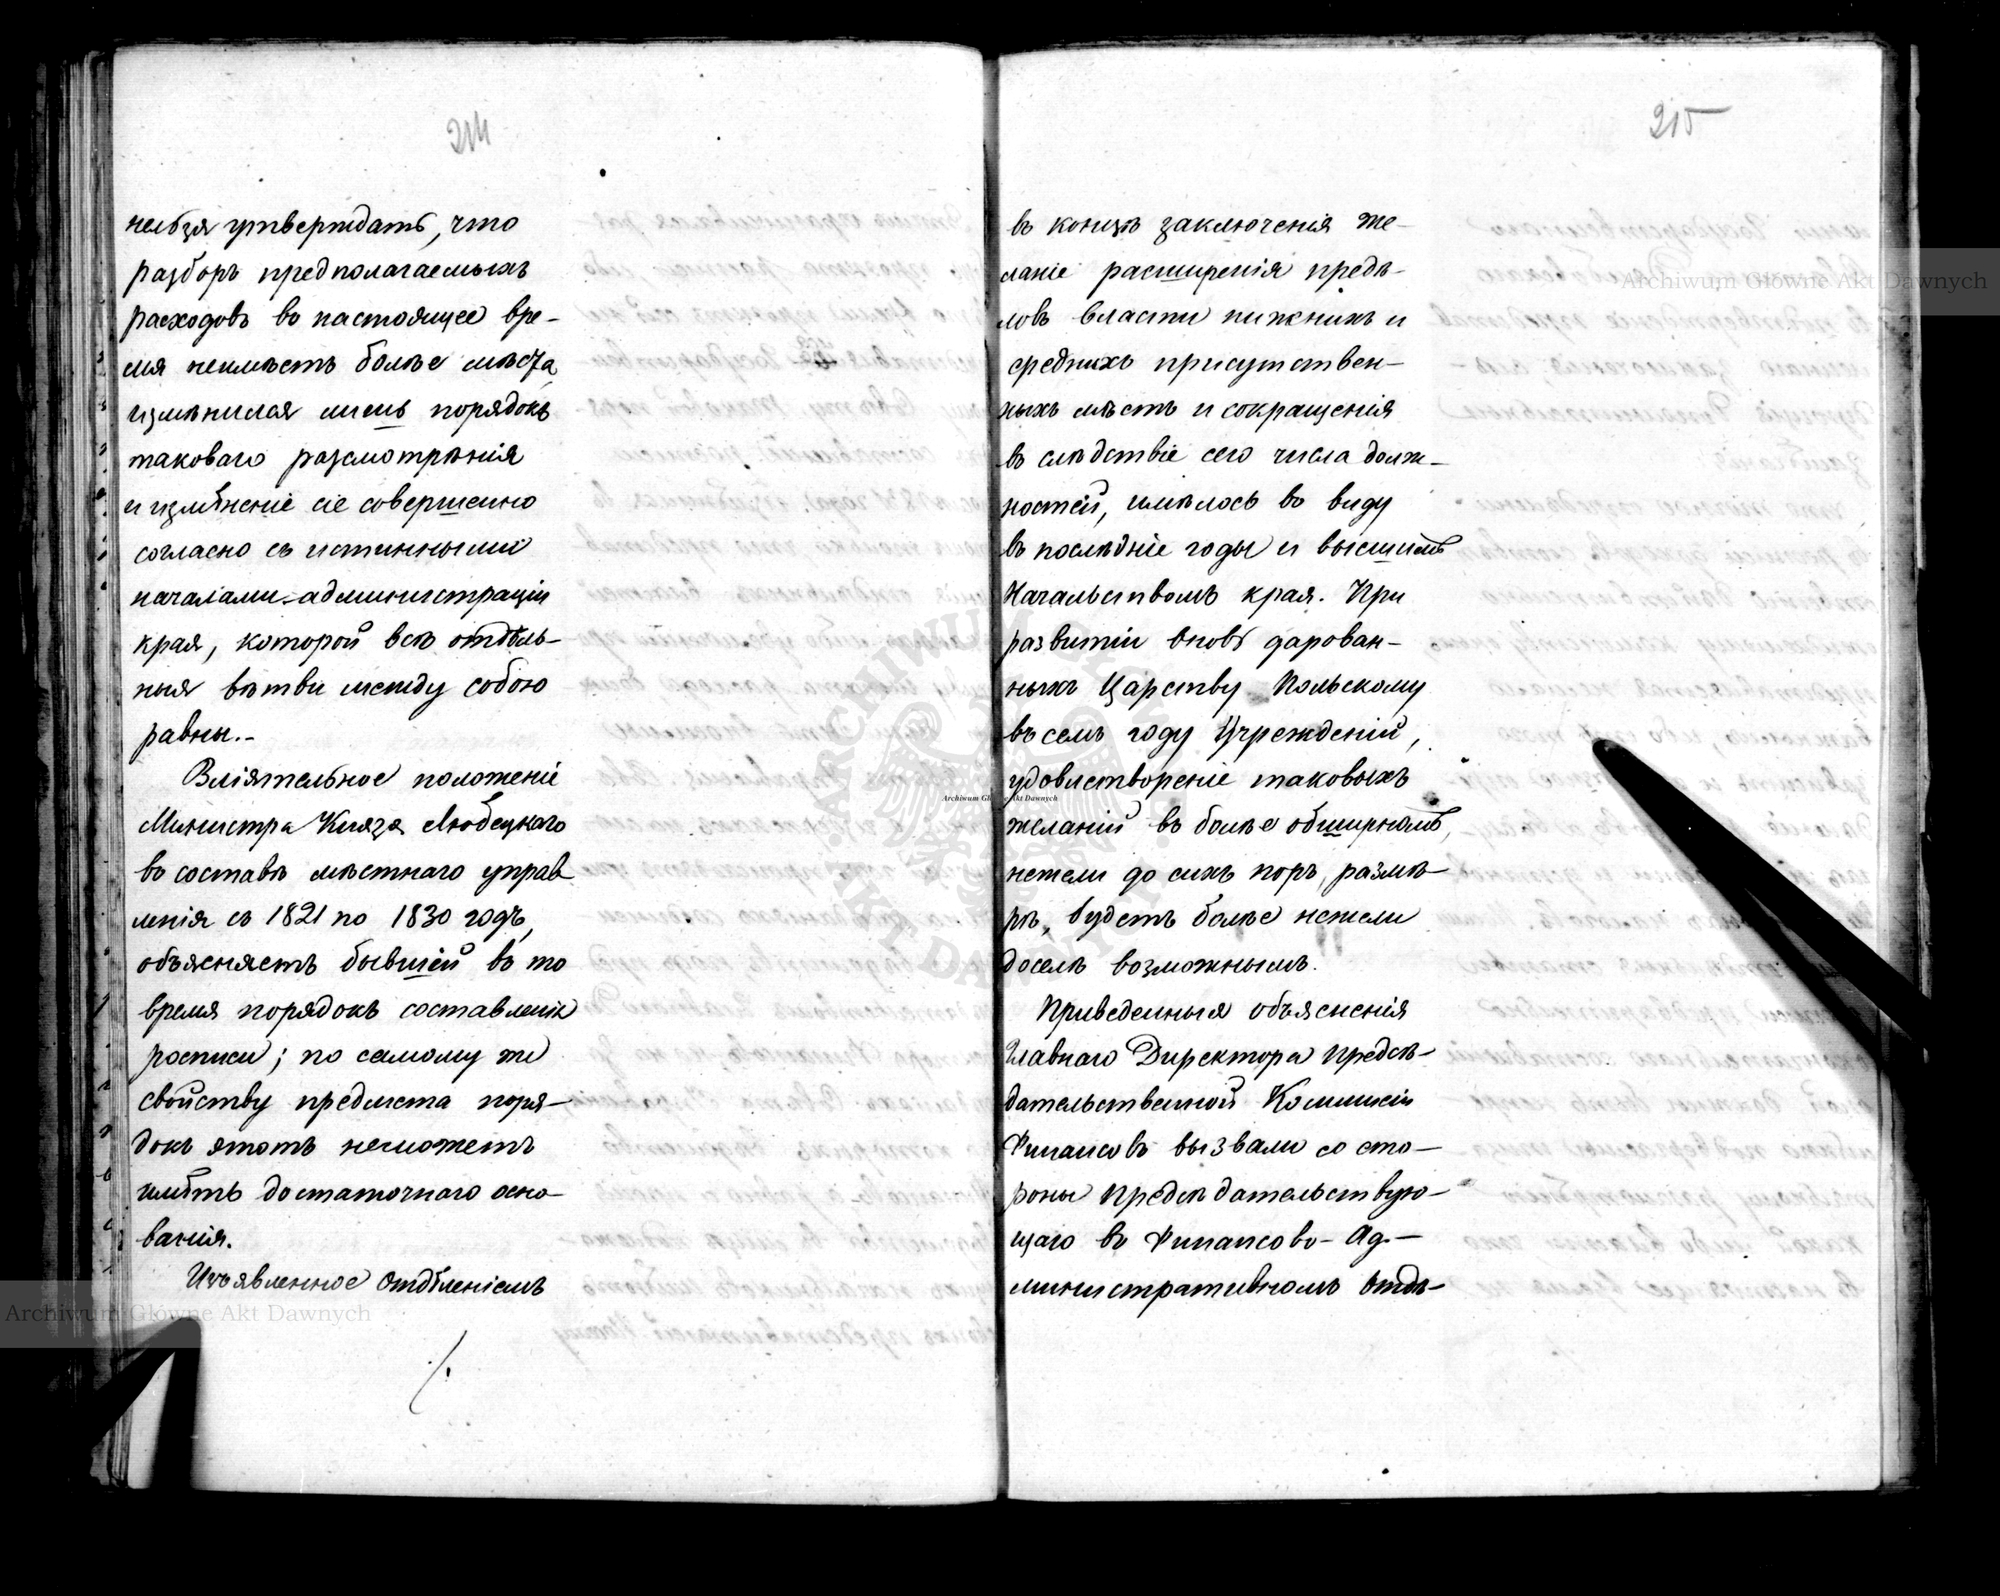 214
нельзя утверждать, что
разборъ предполагаемыхъ
расходовъ въ настоящее вре-
мя неимѣетъ болѣе мѣста,
измѣнился лишь порядокъ
таковаго разсмотрѣнія
и измѣненіе сіе совершенно
согласно съ истинными
началами администраціи
края, которой всѣ отдѣль-
ныя вѣтви между собою
равны.-
Вліятельное положеніе
Министра Князя Любецкаго
въ составѣ мѣстнаго управ
ленія съ 1821 по 1830 годъ,
объясняетъ бывшій въ то
время порядокъ составленія
росписи; по самому же
свойству предмета поря-
докъ этотъ неможетъ
имѣть достаточнаго осно-
ванія.
Изъявленное Отдѣленіемъ
./.
215
въ концѣ заключенія же-
ланіе расширенія предѣ-
ловъ власти нижнихъ и
среднихъ присутствен-
ныхъ мѣстъ и сокращенія
въ слѣдствіе сего числа долж-
ностей, имѣлось въ виду
въ послѣдніе годы и высшимъ
Начальствомъ края. При
развитіи вновь дарован-
ныхъ Царству Польскому
въ семъ году Учрежденій,
удовлетвореніе таковыхъ
желаній въ болѣе обширномъ,
нежели до сихъ поръ, размѣ-
рѣ, будетъ болѣе нежели
доселѣ возможнымъ.
Приведенныя объясненія
Главнаго Директора Предсѣ-
дательственной Коммисіи
Финансовъ вызвали со сто-
роны Предсѣдательствую-
щаго въ Финансово-Ад-
министративномъ Отдѣ-
Archiwum Główne Akt Dawnych
Archiwum Główne Akt Dawnych
Archiwum Główne Akt Dawnych